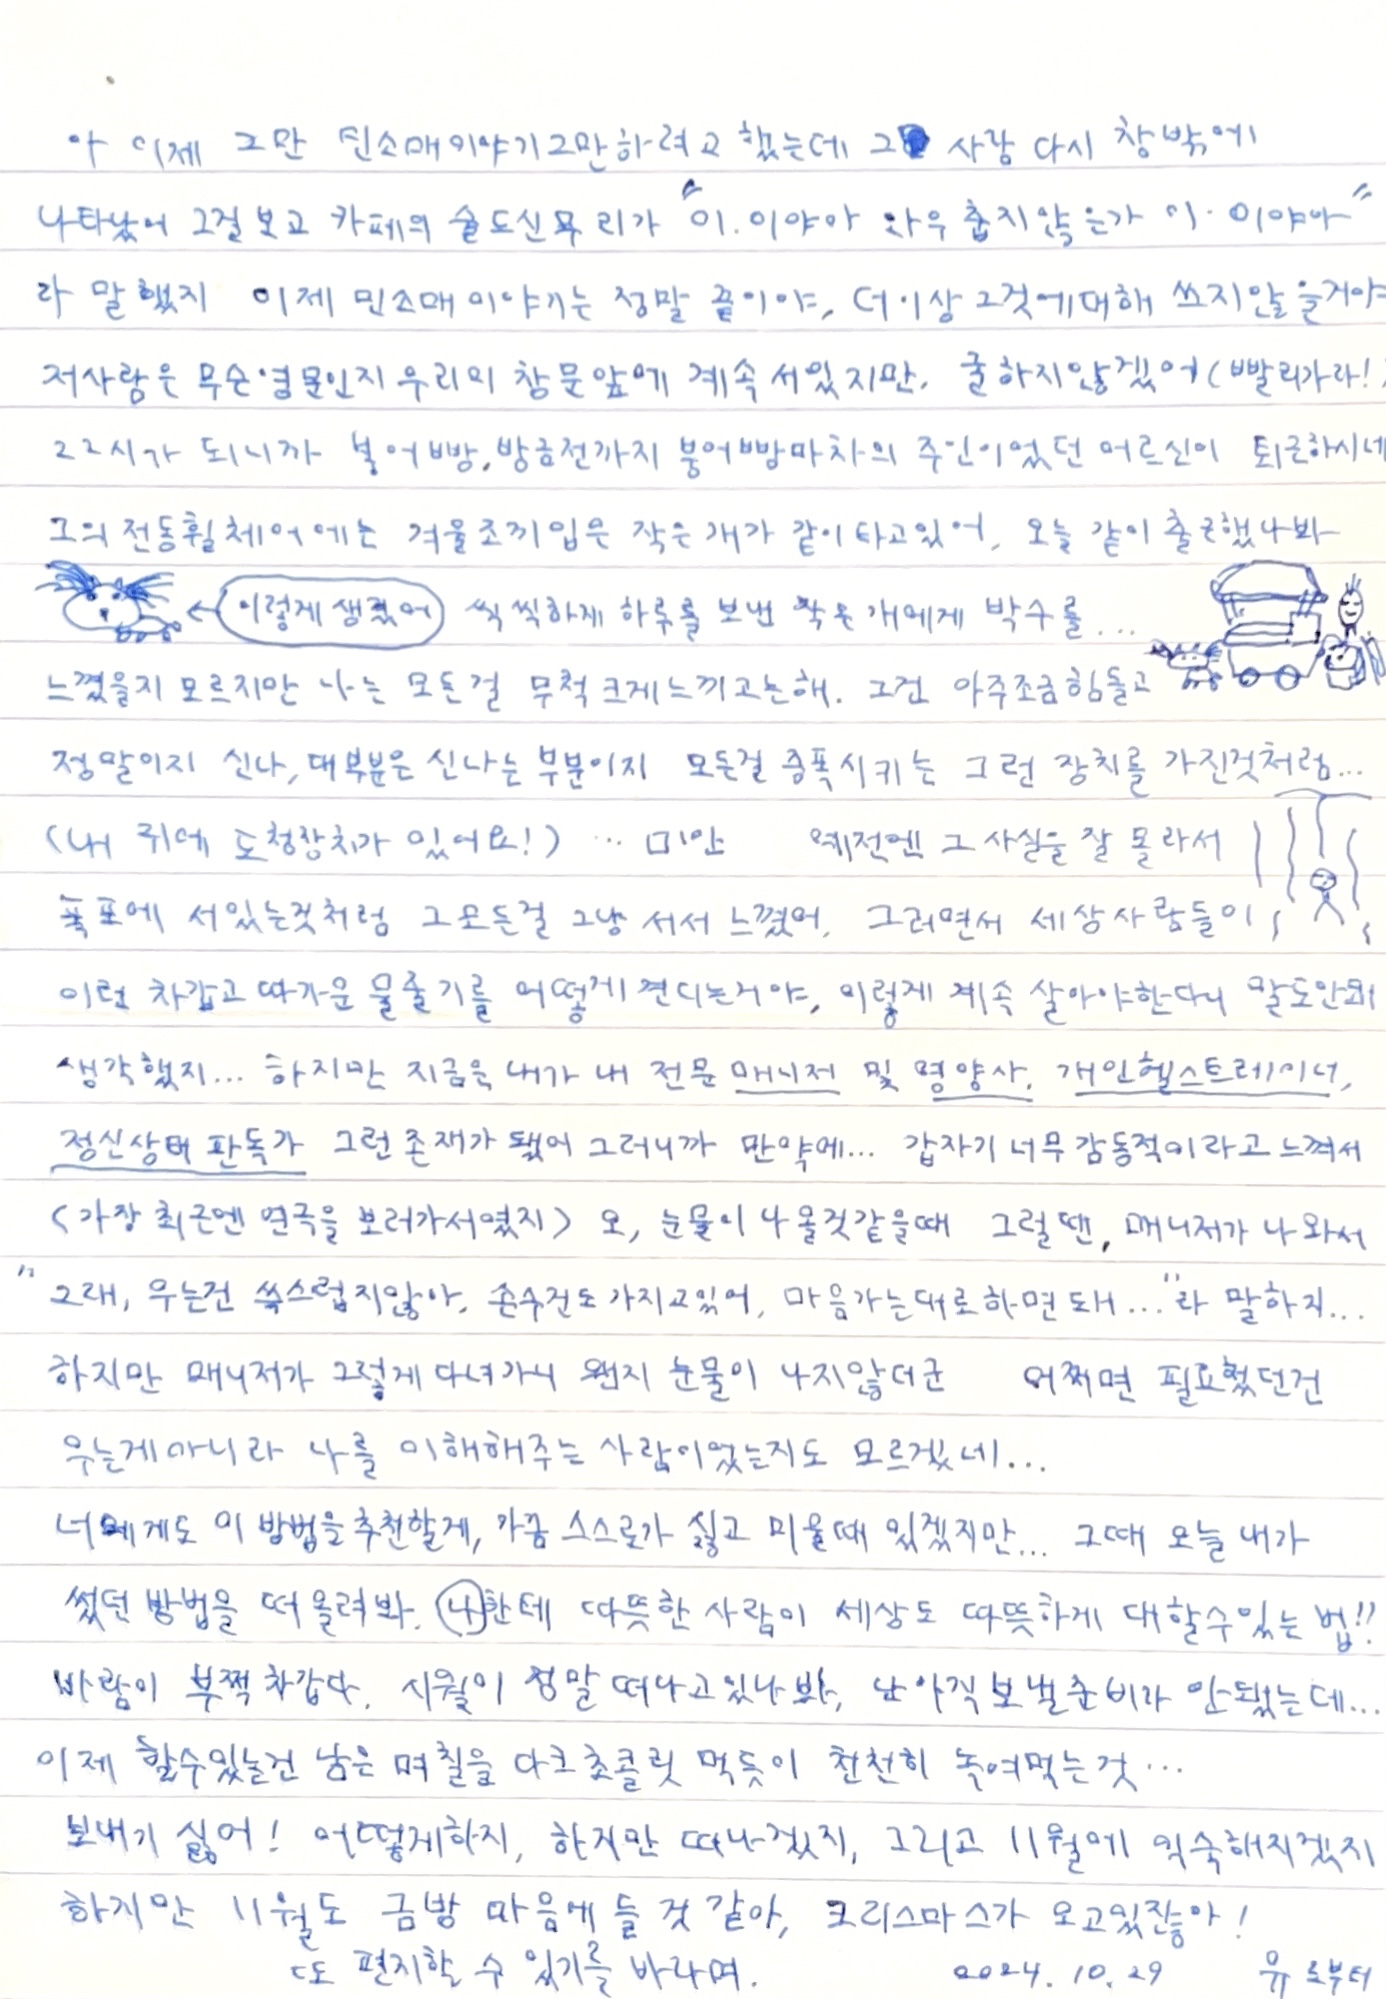 아 이제 그만 민소매이야기그만하려고 했는데 그 사람 다시 창밖에
나타났어 그걸보고 카페의 술도신 무리가 "이.이야아 와우 춥지않은가 이.이야아"
라 말했지 이제 민소매이야기는 정말 끝이야, 더이상 그것에대해 쓰지않을거야
저사람은 무슨영문인지 우리의 창문앞에 계속 서있지만, 굴하지않겠어(빨리가라!)
22시가 되니까 붕어빵, 방금전까지 붕어빵마차의 주인이었던 어르신이 퇴근하시네
그의 전동휠체어에는 겨울조끼입은 작은개가 같이타고있어, 오늘 같이 출근했나봐
←이렇게 생겼어 씩씩하게 하루를 보낸 작은개에게 박수를...
느꼈을지 모르지만 나는 모든걸 무척 크게느끼고는해. 그건 아주조금힘들고
정말이지 신나, 대부분은 신나는 부분이지 모든걸 증폭시키는 그런 장치를 가진것처럼...
(내 귀에 도청장치가 있어요!) ... 미안 예전엔 그 사실을 잘 몰라서
폭포에 서있는것처럼 그모든걸 그냥 서서 느꼈어, 그러면서 세상사람들이
이런 차갑고 따가운 물줄기를 어떻게 견디는거야, 이렇게 계속 살아야한다니 말도안돼
생각했지... 하지만 지금은 내가 내 전문 매니저 및 영양사, 개인헬스트레이너,
정신상태 판독가 그런존재가 됐어 그러니까 만약에... 갑자기 너무 감동적이라고 느껴서
<가장 최근엔 연극을 보러가서였지> 오, 눈물이 나올것같을때 그럴땐, 매니저가 나와서
"그래, 우는건 쑥스럽지않아, 손수건도 가지고있어, 마음가는대로하면돼..."라 말하지...
하지만 매니저가 그렇게 다녀가니 왠지 눈물이 나지않더군 어쩌면 필요했던건
우는게아니라 나를 이해해주는 사람이었는지도 모르겠네...
너에게도 이 방법을 추천할게, 가끔 스스로가 싫고 미울때 있겠지만... 그때 오늘 내가
썼던 방법을 떠올려봐. 나한테 따뜻한 사람이 세상도 따뜻하게 대할수있는 법!!
바람이 부쩍 차갑다. 시월이 정말 떠나고있나봐, 난 아직 보낼준비가 안됐는데...
이제 할수있는건 남은 며칠을 다크초콜릿 먹듯이 천천히 녹여먹는것...
보내기 싫어! 어떻게하지, 하지만 떠나겠지, 그리고 11월에 익숙해지겠지
하지만 11월도 금방 마음에 들 것 같아, 크리스마스가 오고있잖아!
또 편지할 수 있기를 바라며. 2024. 10. 29 유 로부터